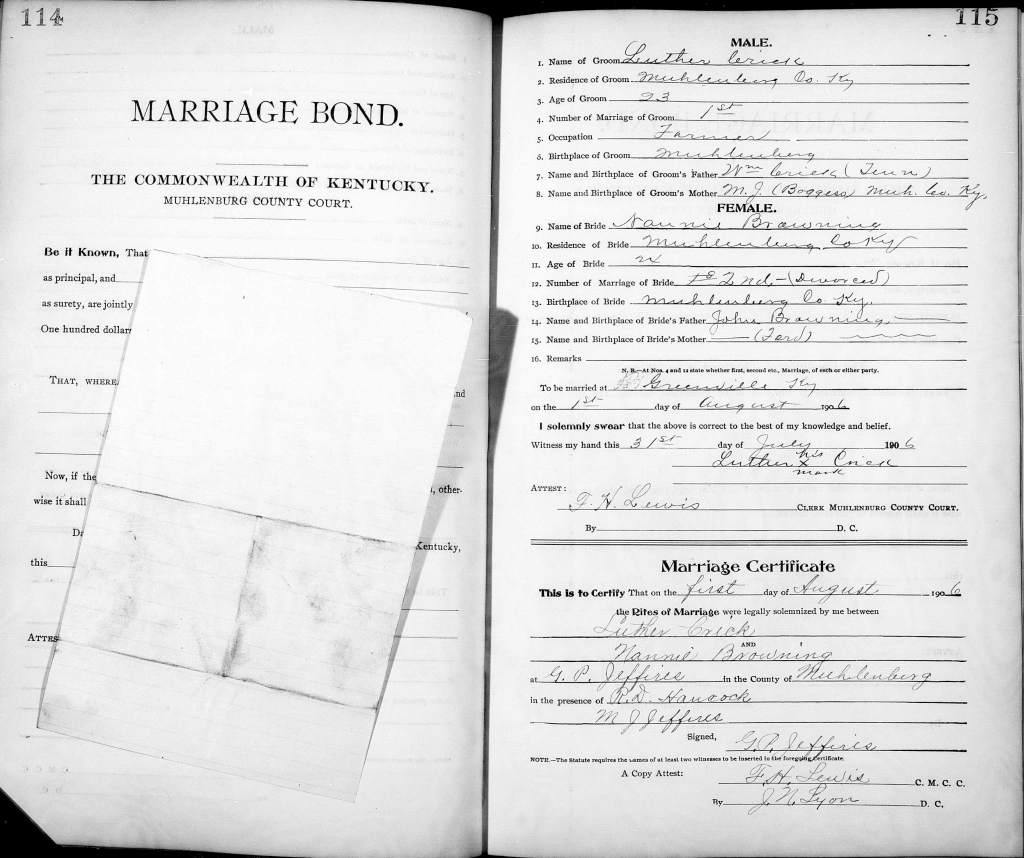 114
MARRIAGE BOND.
THE COMMONWEALTH OF KENTUCKY.
MUHLENBURG COUNTY COURT.
Be it Known, That
as principal, and
as surety, are jointly
One hundred dollars
THAT, WHERE
and
Now, if the
, other-
wise it shall
Kentucky,
this
ATTES
115
MALE.
1. Name of Groom Luther Crick
2. Residence of Groom Muhlenberg Co. Ky
3. Age of Groom 23
4. Number of Marriage of Groom 1st
5. Occupation Farmer
6. Birthplace of Groom Muhlenberg
7. Name and Birthplace of Groom's Father Wm Crick (Tenn)
8. Name and Birthplace of Groom's Mother M. J. (Boggess) Muh. Co. Ky.
FEMALE.
9. Name of Bride Nannie Browning
10. Residence of Bride Muhlenberg Co Ky
11. Age of Bride
12. Number of Marriage of Bride 2nd - (Divorced)
13. Birthplace of Bride Muhlenberg Co. Ky.
14. Name and Birthplace of Bride's Father John Browning.
15. Name and Birthplace of Bride's Mother (Ford)
16. Remarks
N. B.—At Nos. 4 and 12 state whether first, second etc., Marriage, of each or either party.
To be married at Greenville Ky
on the 1st day of August 1906
I solemnly swear that the above is correct to the best of my knowledge and belief.
Witness my hand this 31st day of July 1906
his
Luther X Crick
mark
ATTEST:
F. H. Lewis CLERK MUHLENBURG COUNTY COURT.
By D. C.
Marriage Certificate
This is to Certify That on the first day of August 1906
the Rites of Marriage were legally solemnized by me between
Luther Crick
AND
Nannie Browning
at G. P. Jeffires in the County of Muhlenberg
in the presence of R. D. Hancock
M J Jeffires
Signed,
G. P. Jeffires
NOTE.—The Statute requires the names of at least two witnesses to be inserted in the foregoing certificate.
A Copy Attest: F. H. Lewis C. M. C. C.
By J. N. Lyon D. C.